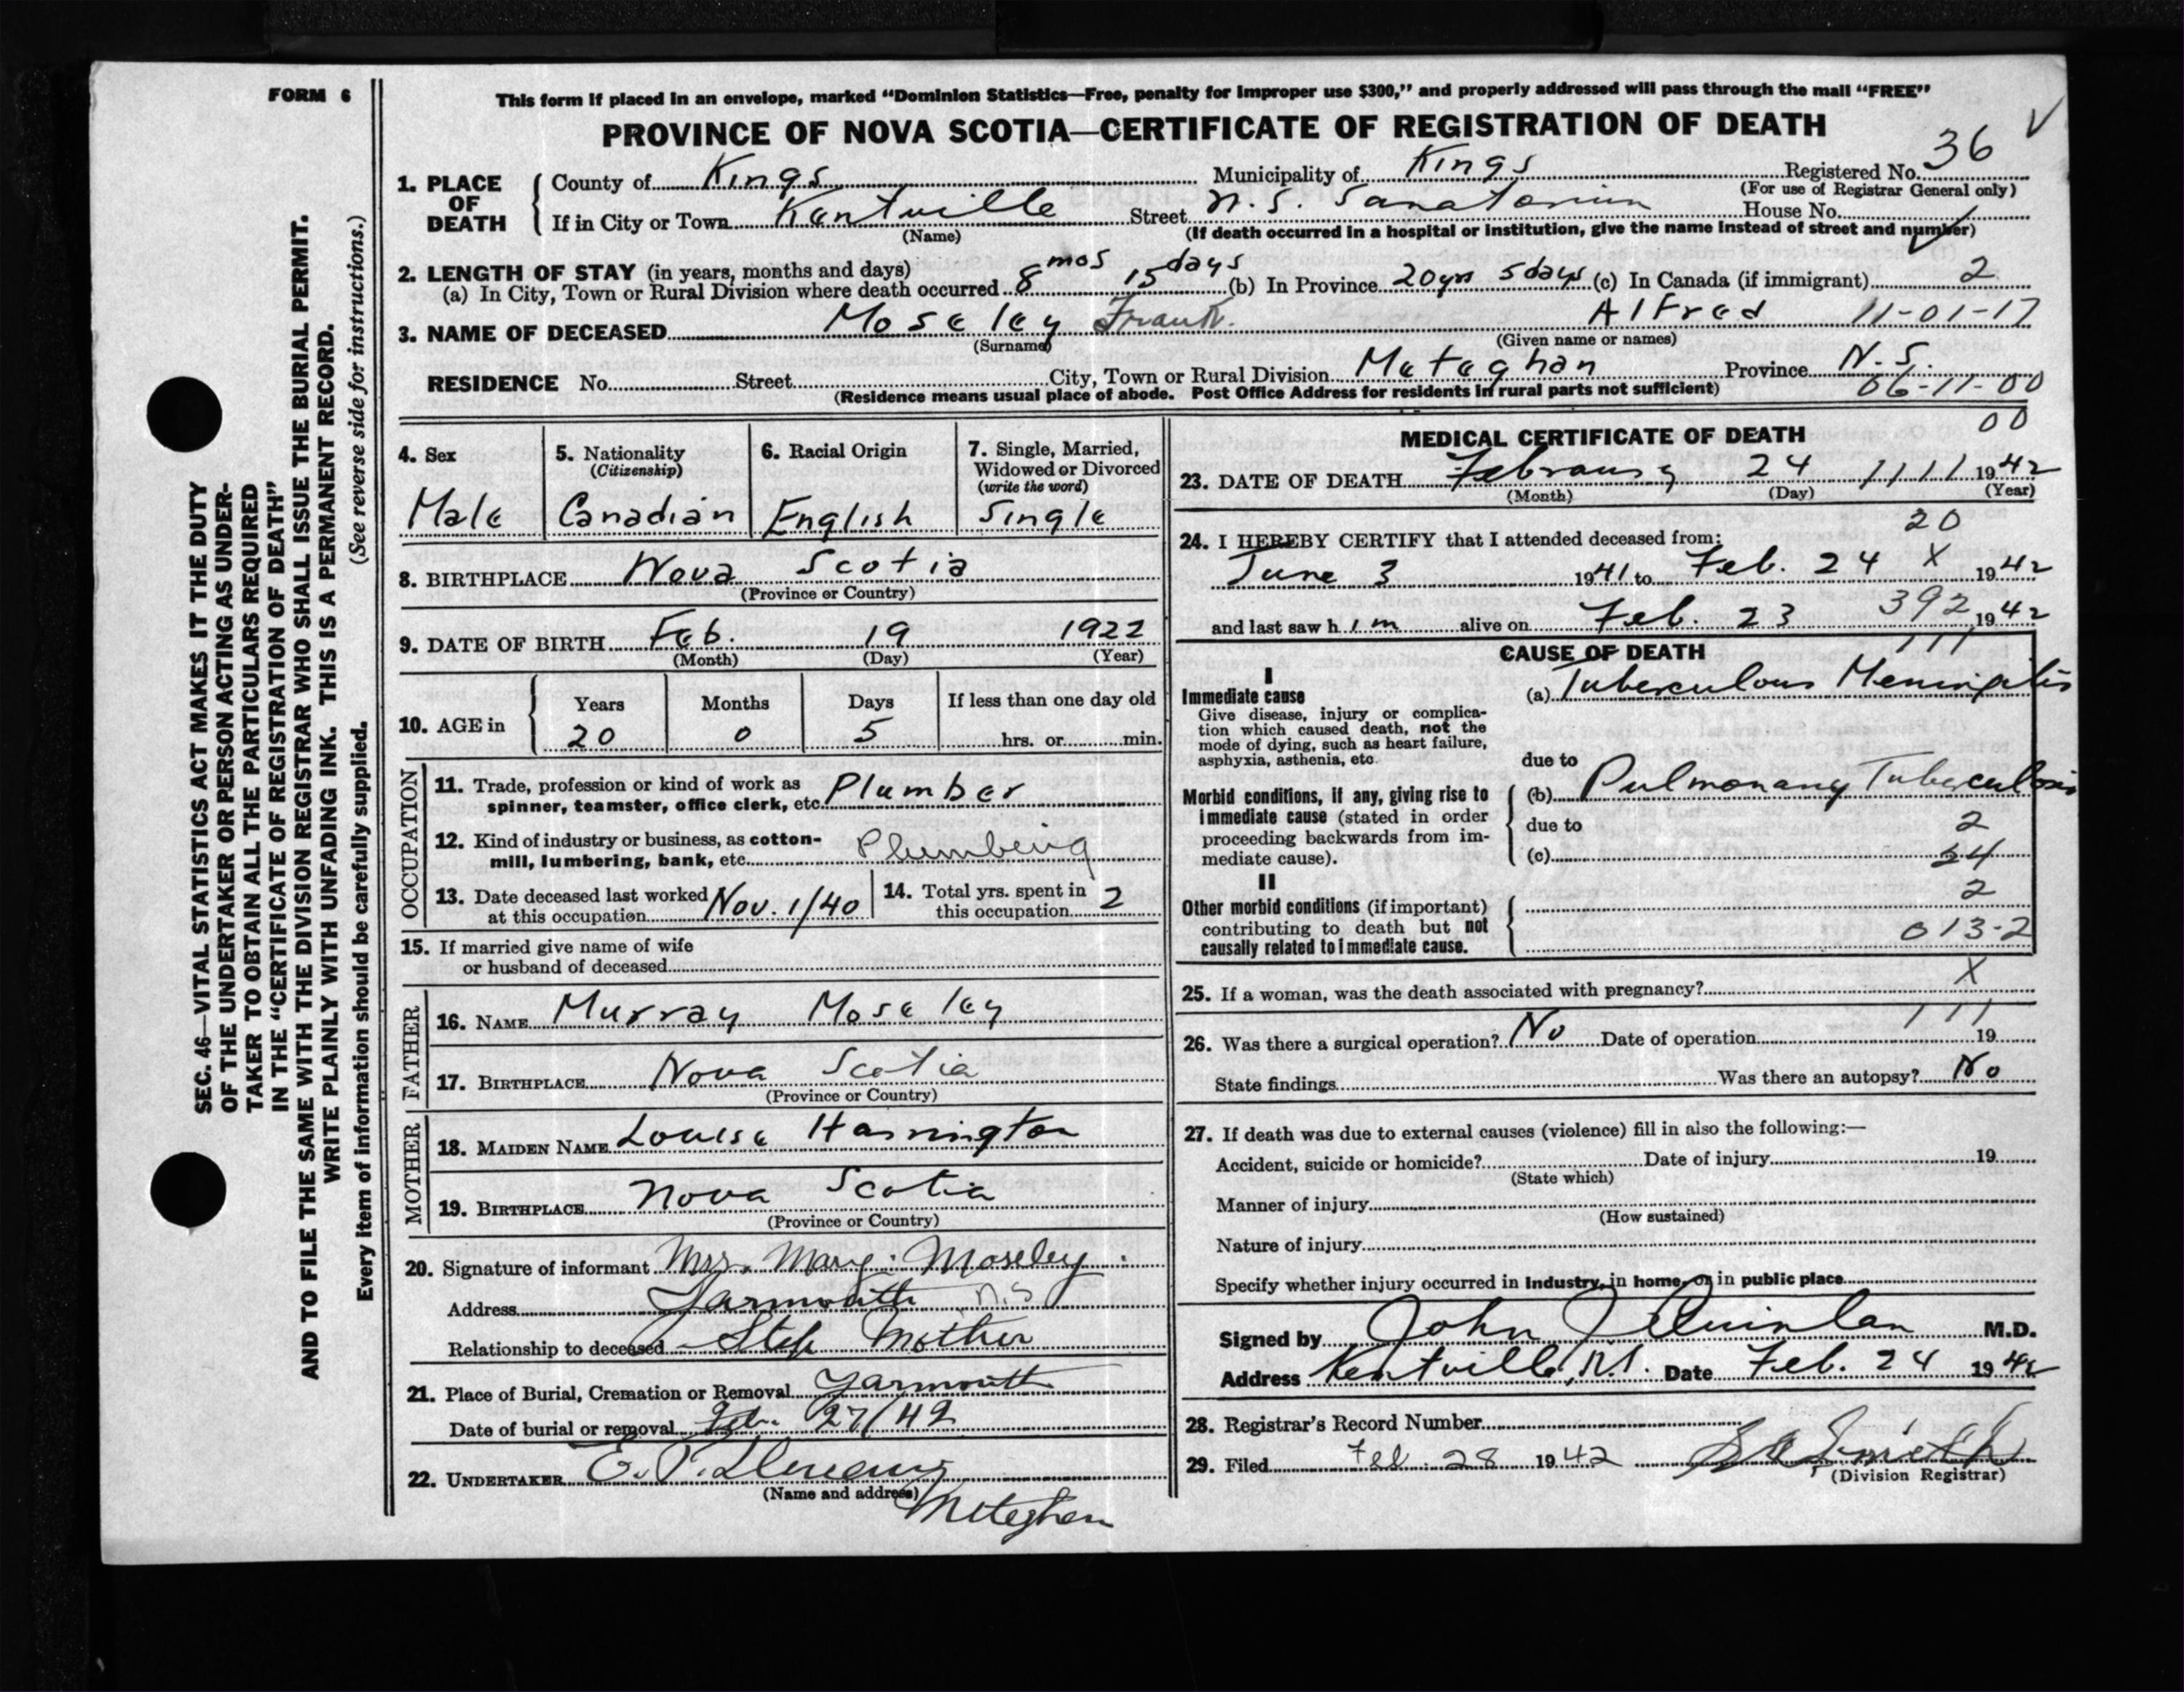 FORM 6
This form if placed in an envelope, marked “Dominion Statistics—Free, penalty for improper use $300,” and properly addressed will pass through the mail “FREE”
PROVINCE OF NOVA SCOTIA—CERTIFICATE OF REGISTRATION OF DEATH
36
1. PLACE OF DEATH
County of Kings Municipality of Kings Registered No.
(For use of Registrar General only)
If in City or Town Kentville Street N. S. Sanatorium House No.
(Name) (If death occurred in a hospital or institution, give the name instead of street and number)
2. LENGTH OF STAY (in years, months and days)
(a) In City, Town or Rural Division where death occurred 8 mos 15 days (b) In Province 20 yrs 5 days (c) In Canada (if immigrant) 2
3. NAME OF DECEASED Moseley Frank. Alfred 11-01-17
(Surname) (Given name or names)
RESIDENCE No. Street City, Town or Rural Division Meteghan Province N. S.
(Residence means usual place of abode. Post Office Address for residents in rural parts not sufficient) 06-11-00
00
4. Sex Male
5. Nationality (Citizenship) Canadian
6. Racial Origin English
7. Single, Married, Widowed or Divorced (write the word) Single
8. BIRTHPLACE Nova Scotia
(Province or Country)
9. DATE OF BIRTH Feb. 19 1922
(Month) (Day) (Year)
10. AGE in Years Months Days If less than one day old
20 0 5 hrs. or min.
OCCUPATION
11. Trade, profession or kind of work as
spinner, teamster, office clerk, etc. Plumber
12. Kind of industry or business, as cotton-
mill, lumbering, bank, etc. Plumbing
13. Date deceased last worked
at this occupation Nov. 1/40
14. Total yrs. spent in
this occupation 2
15. If married give name of wife
or husband of deceased
FATHER
16. NAME Murray Moseley
17. BIRTHPLACE Nova Scotia
(Province or Country)
MOTHER
18. MAIDEN NAME Louise Harrington
19. BIRTHPLACE Nova Scotia
(Province or Country)
20. Signature of informant Mrs. Mary Moseley
Address Yarmouth N.S
Relationship to deceased Step Mother
21. Place of Burial, Cremation or Removal Yarmouth
Date of burial or removal Feb. 27/42
22. UNDERTAKER E.
(Name and address)
Meteghan
MEDICAL CERTIFICATE OF DEATH
23. DATE OF DEATH February 24 1111 1942
(Month) (Day) (Year)
20
24. I HEREBY CERTIFY that I attended deceased from:
June 3 1941 to Feb. 24 X 1942
and last saw him alive on Feb. 23 392 1942
CAUSE OF DEATH 111
I
Immediate cause
Give disease, injury or complica-
tion which caused death, not the
mode of dying, such as heart failure,
asphyxia, asthenia, etc.
(a) Tuberculous Meningitis
due to
Morbid conditions, if any, giving rise to
immediate cause (stated in order
proceeding backwards from im-
mediate cause).
(b) Pulmonary Tuberculosis
due to 2
(c) 24
II
Other morbid conditions (if important)
contributing to death but not
causally related to immediate cause.
2
013-2
25. If a woman, was the death associated with pregnancy? X
111
26. Was there a surgical operation? No Date of operation 19
State findings Was there an autopsy? No
27. If death was due to external causes (violence) fill in also the following:—
Accident, suicide or homicide? Date of injury 19
(State which)
Manner of injury
(How sustained)
Nature of injury
Specify whether injury occurred in industry, in home, or in public place
Signed by John J Quinlan M.D.
Address Kentville, N.S. Date Feb. 24 1942
28. Registrar's Record Number
29. Filed Feb 28 1942
(Division Registrar)
SEC. 46—VITAL STATISTICS ACT MAKES IT THE DUTY
OF THE UNDERTAKER OR PERSON ACTING AS UNDER-
TAKER TO OBTAIN ALL THE PARTICULARS REQUIRED
IN THE “CERTIFICATE OF REGISTRATION OF DEATH”
AND TO FILE THE SAME WITH THE DIVISION REGISTRAR WHO SHALL ISSUE THE BURIAL PERMIT.
WRITE PLAINLY WITH UNFADING INK. THIS IS A PERMANENT RECORD.
Every item of information should be carefully supplied. (See reverse side for instructions.)